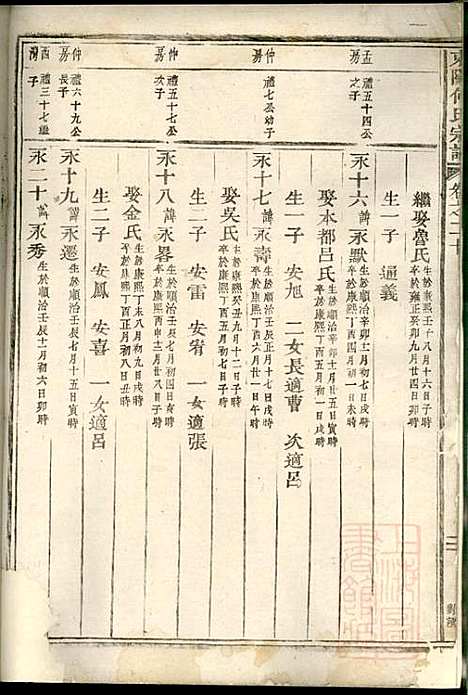 東陽何氏宗譜 卷之二十
繼娶魯氏 生於康熙壬子八月十六日子時 卒於雍正癸卯九月廿四日時
生一子 通義
孟房 禮五十四公之子
永十六 諱永默 生於順治辛卯二月初七日戌時 卒於康熙丁酉四月初一日時
娶本都呂氏 生於順治辛卯十一月廿五日寅時 卒於康熙丁酉五月初一日戌時
生一子 安旭 二女長適曹 次適呂
仲房 禮七公幼子
永十七 諱永壽 生於順治壬辰正月十七日戌時 卒於康熙丁酉二月廿一日午時
娶吳氏 生於康熙癸丑九月十二日子時
生二子 安雷 安宥 一女適張
仲房 禮五十七公次子
永十八 諱永畧 生於順治壬辰七月初四日亥時
娶金氏 生於康熙丁未八月初九日戌時 卒於康熙丁酉十一月初八日亥時
生二子 安鳳 安喜 一女適呂
仲房 禮六十九公長子
永十九 諱永遷 生於順治壬辰七月十五日寅時
西灣 禮三十七繼子
永二十 諱永秀 生於順治壬辰十二月初六日卯時